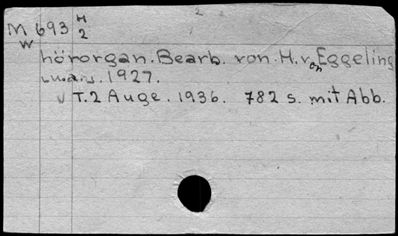 M 693 H
W 2
hörorgan. Bearb. von H. von Eggeling
1927.
T. 2 Auge. 1936. 782 s. mit Abb.